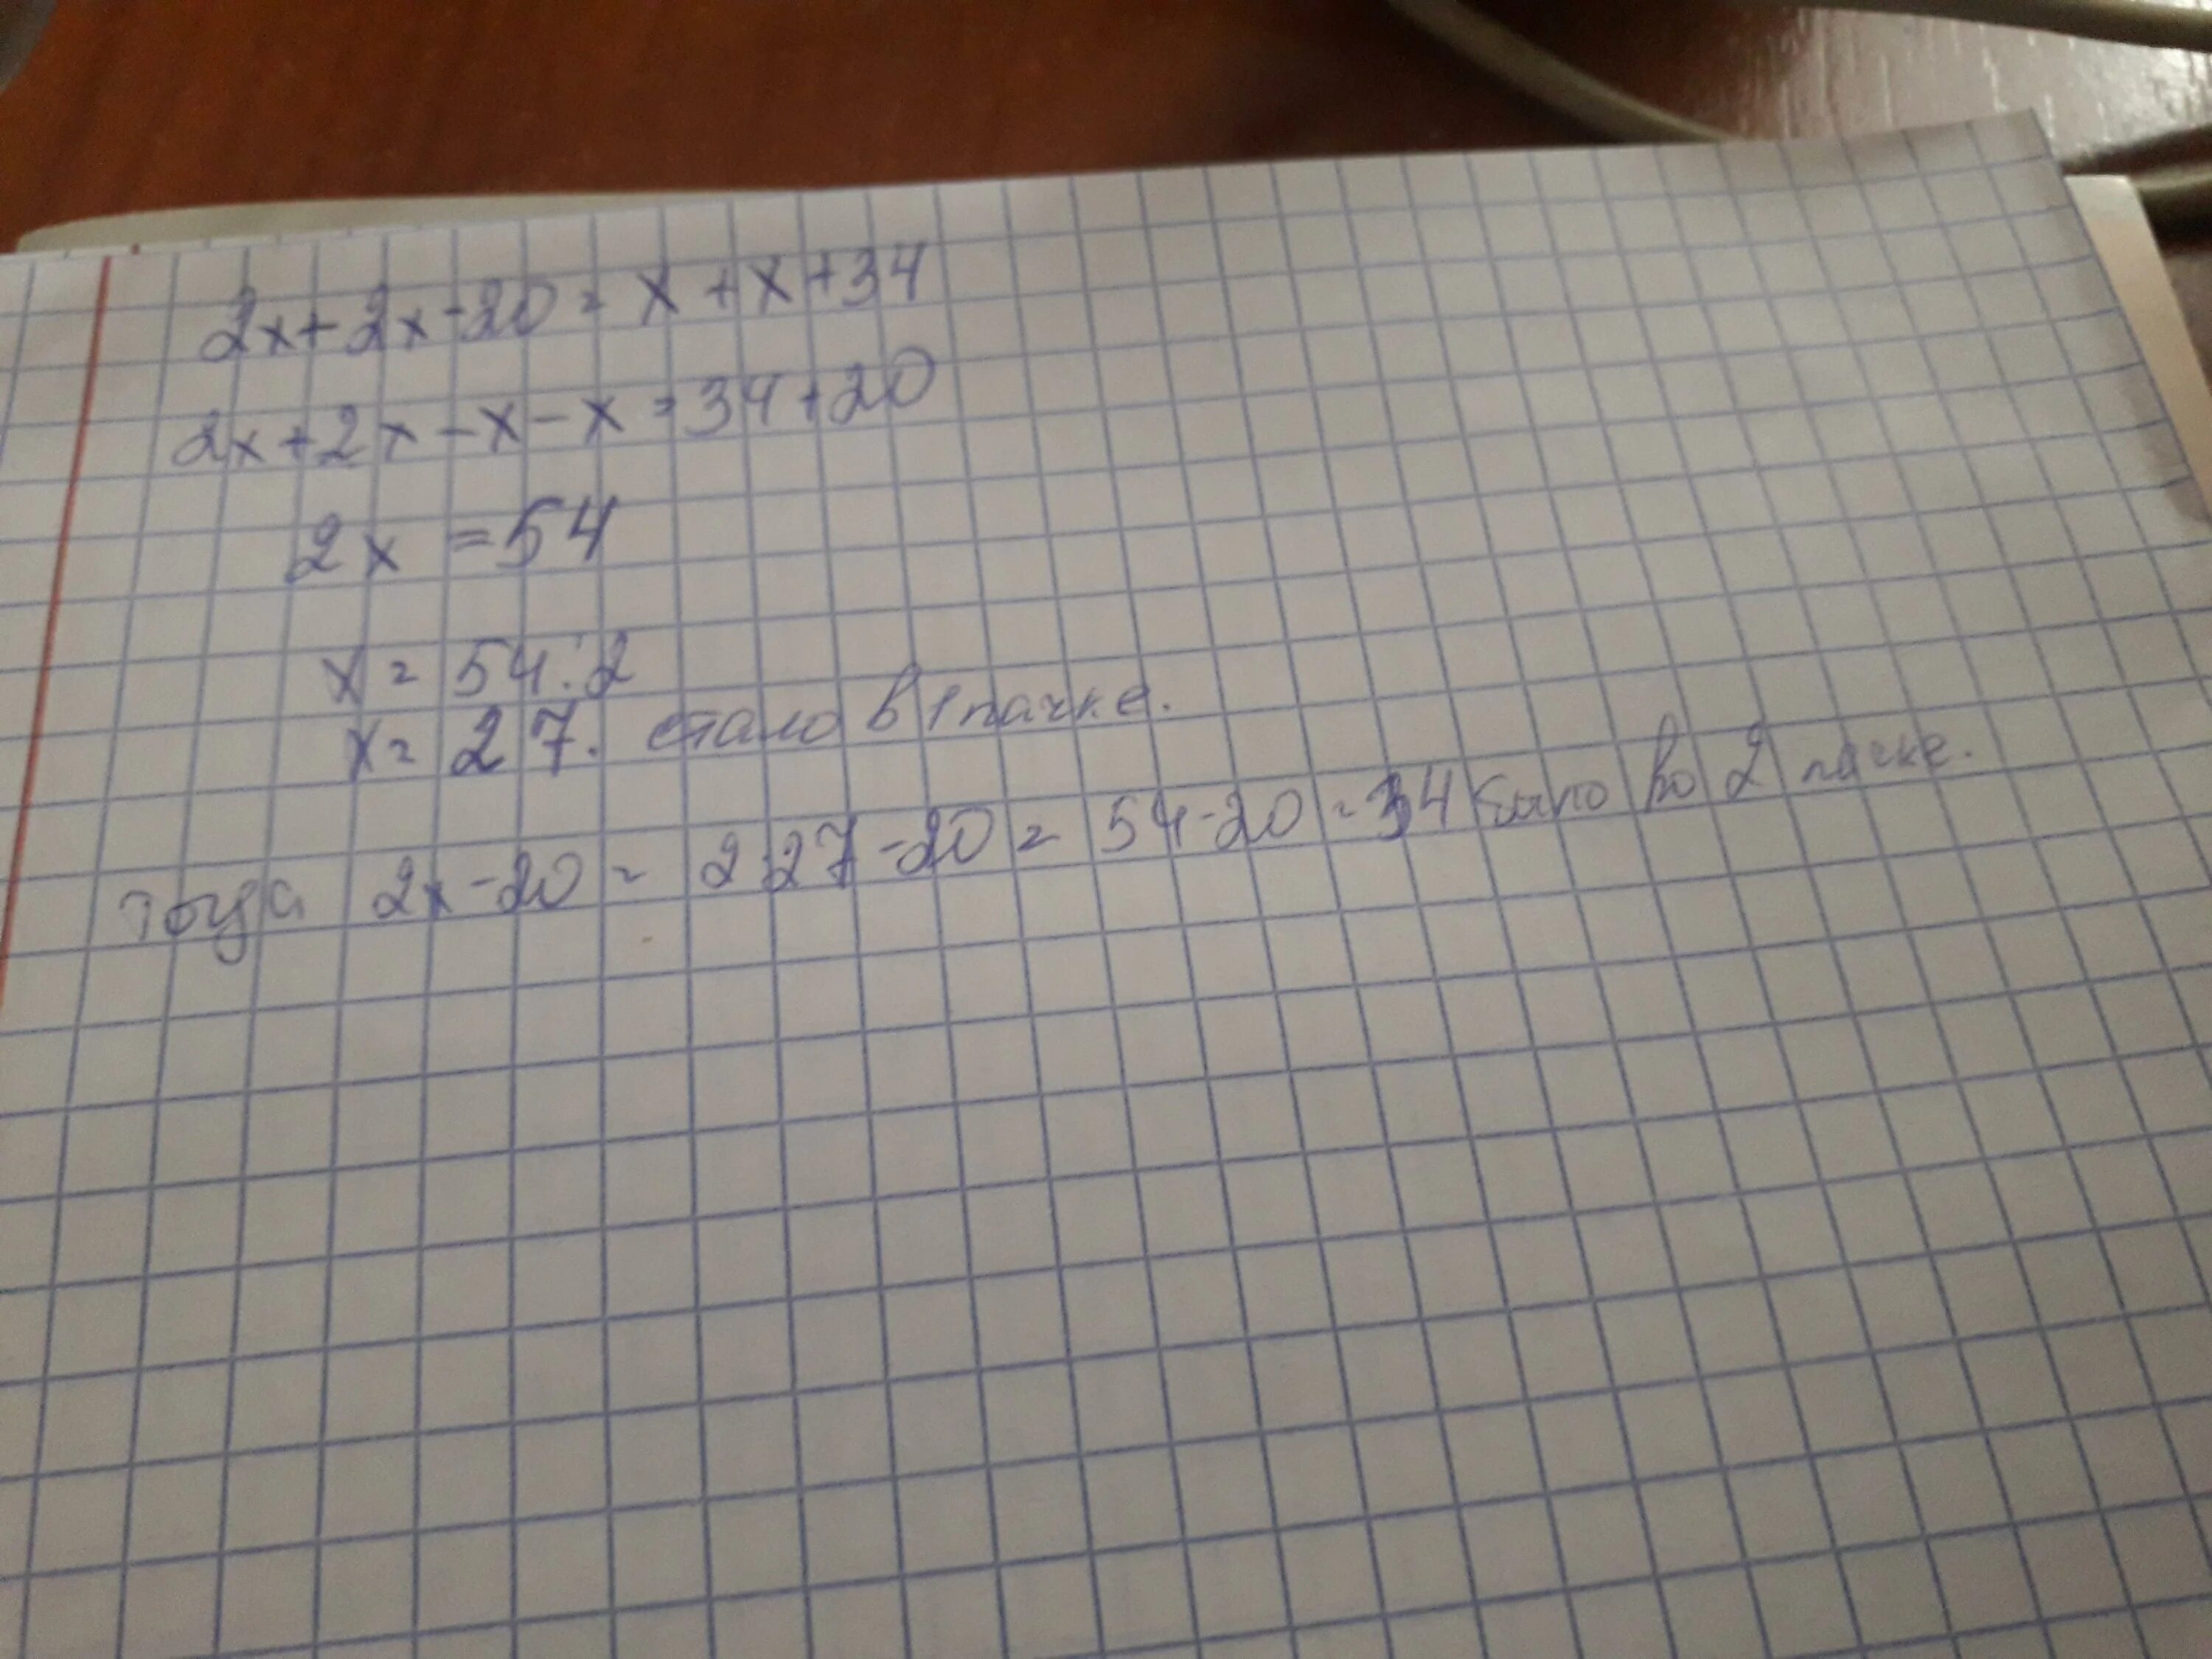 2x+2x-20=x+x+34
2x+2x-x-x=34+20
2x=54
x=54:2
x=27. стало в 1 пачке.
тогда 2x-20=2·27-20=54-20=34 было во 2 пачке.